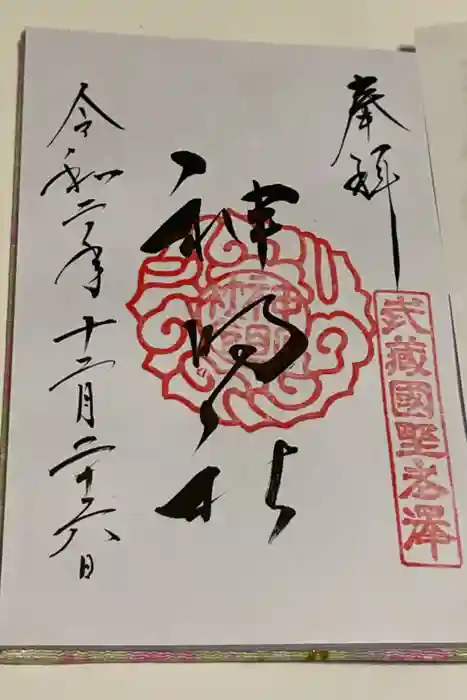 奉拝
武藏國野老澤
神明社
令和二年十二月二十六日